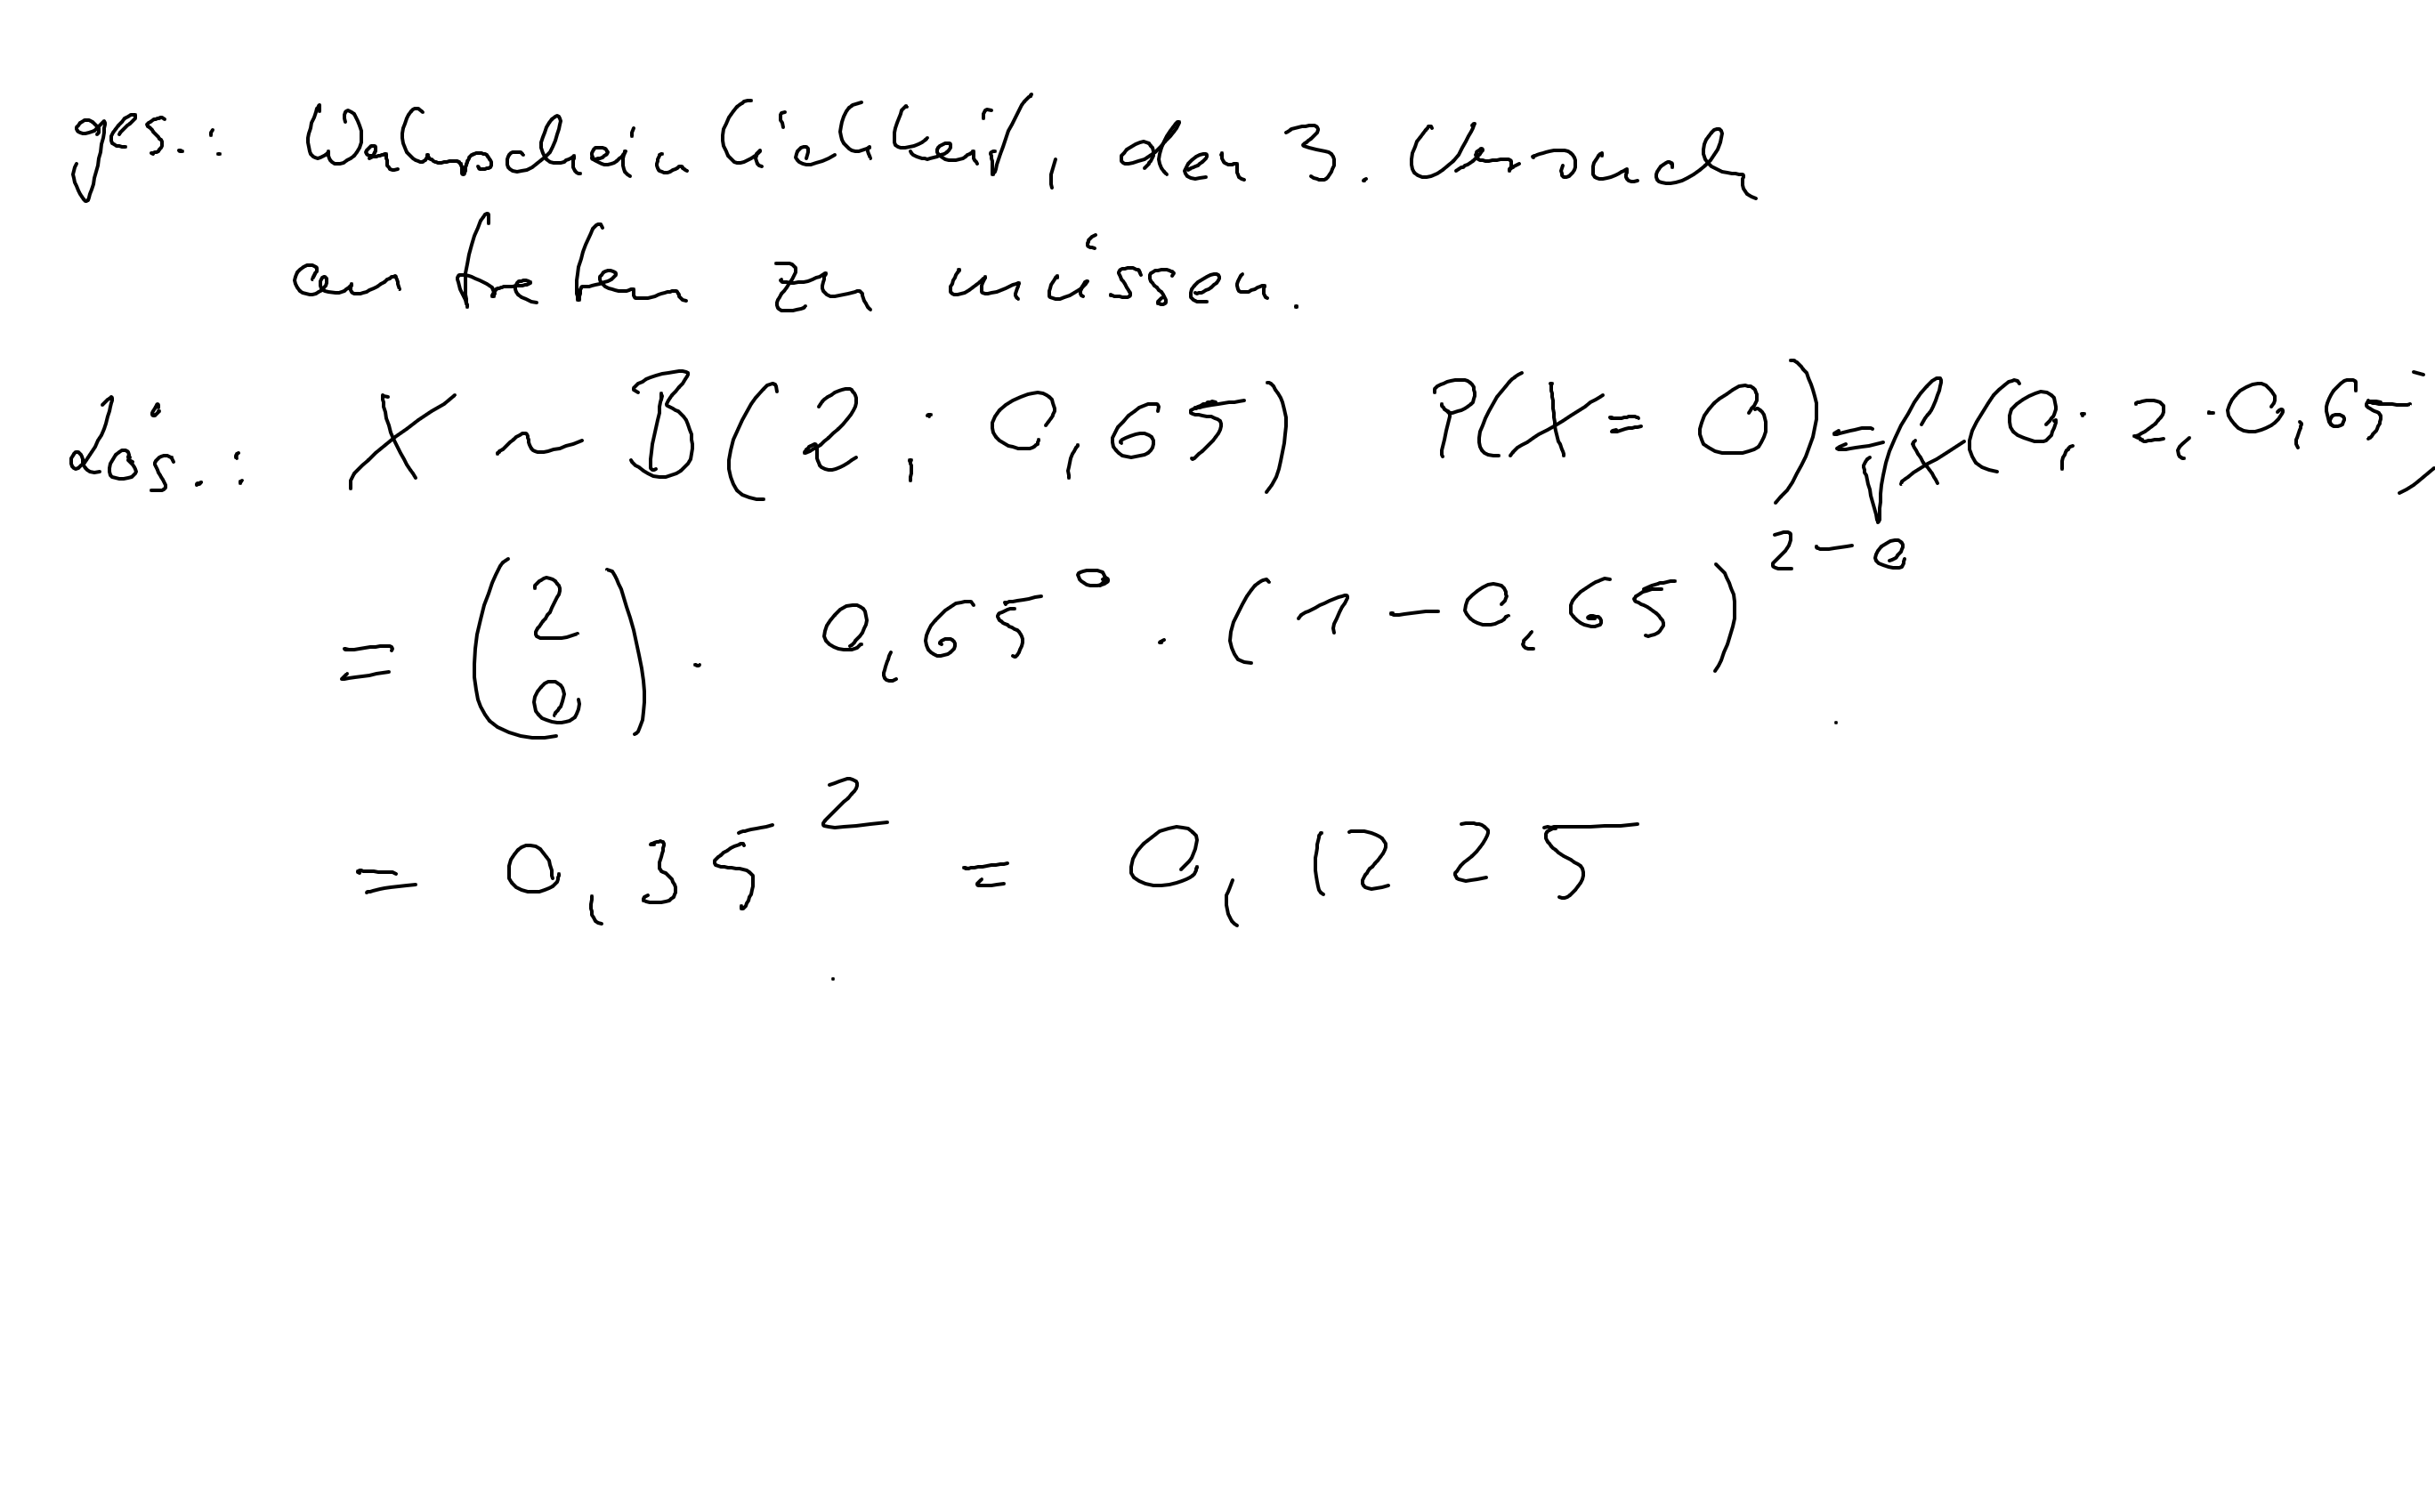 ges.: Wahrscheinlichkeit, den 3. Versuch
antreten zu müssen.
Lös.: X ~ B(2; 0,65) P(X=0) = f_X(0; 2, 0,65)
= (2 0) · 0,65⁰ · (1-0,65)²⁻⁰
= 0,35² = 0,1225